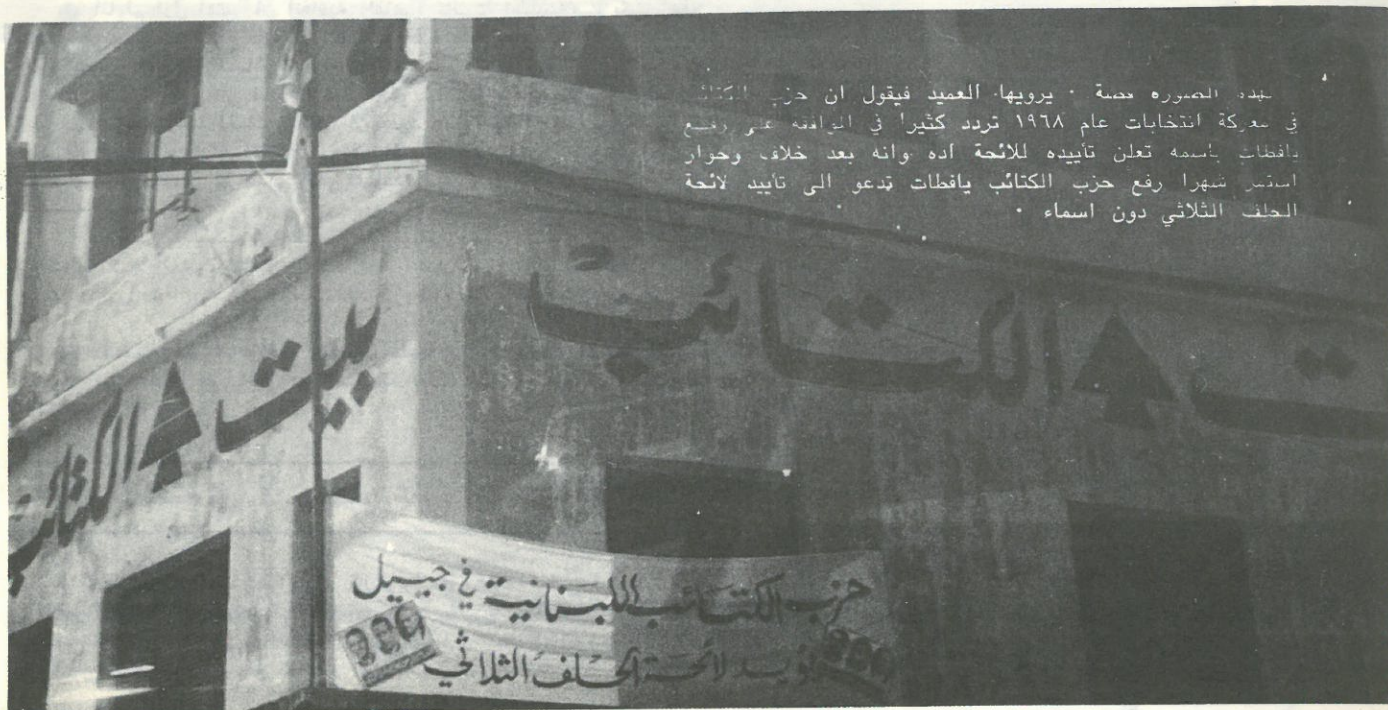 لهذه الصوره قصة ٠ يرويها العميد فيقول ان حزب الكتائب
في معركة انتخابات عام ١٩٦٨ تردد كثيرا في الموافقة على رفع
يافطات باسمه تعلن تأييده للائحة اده وانه بعد خلاف وحوار
استمر شهرا رفع حزب الكتائب يافطات تدعو الى تأييد لائحة
الحلف الثلاثي دون اسماء ٠
ـت الكتائب
بيت الكتائب
حزب الكتائب اللبنانية في جبيل
يؤيد لائحة الحلف الثلاثي